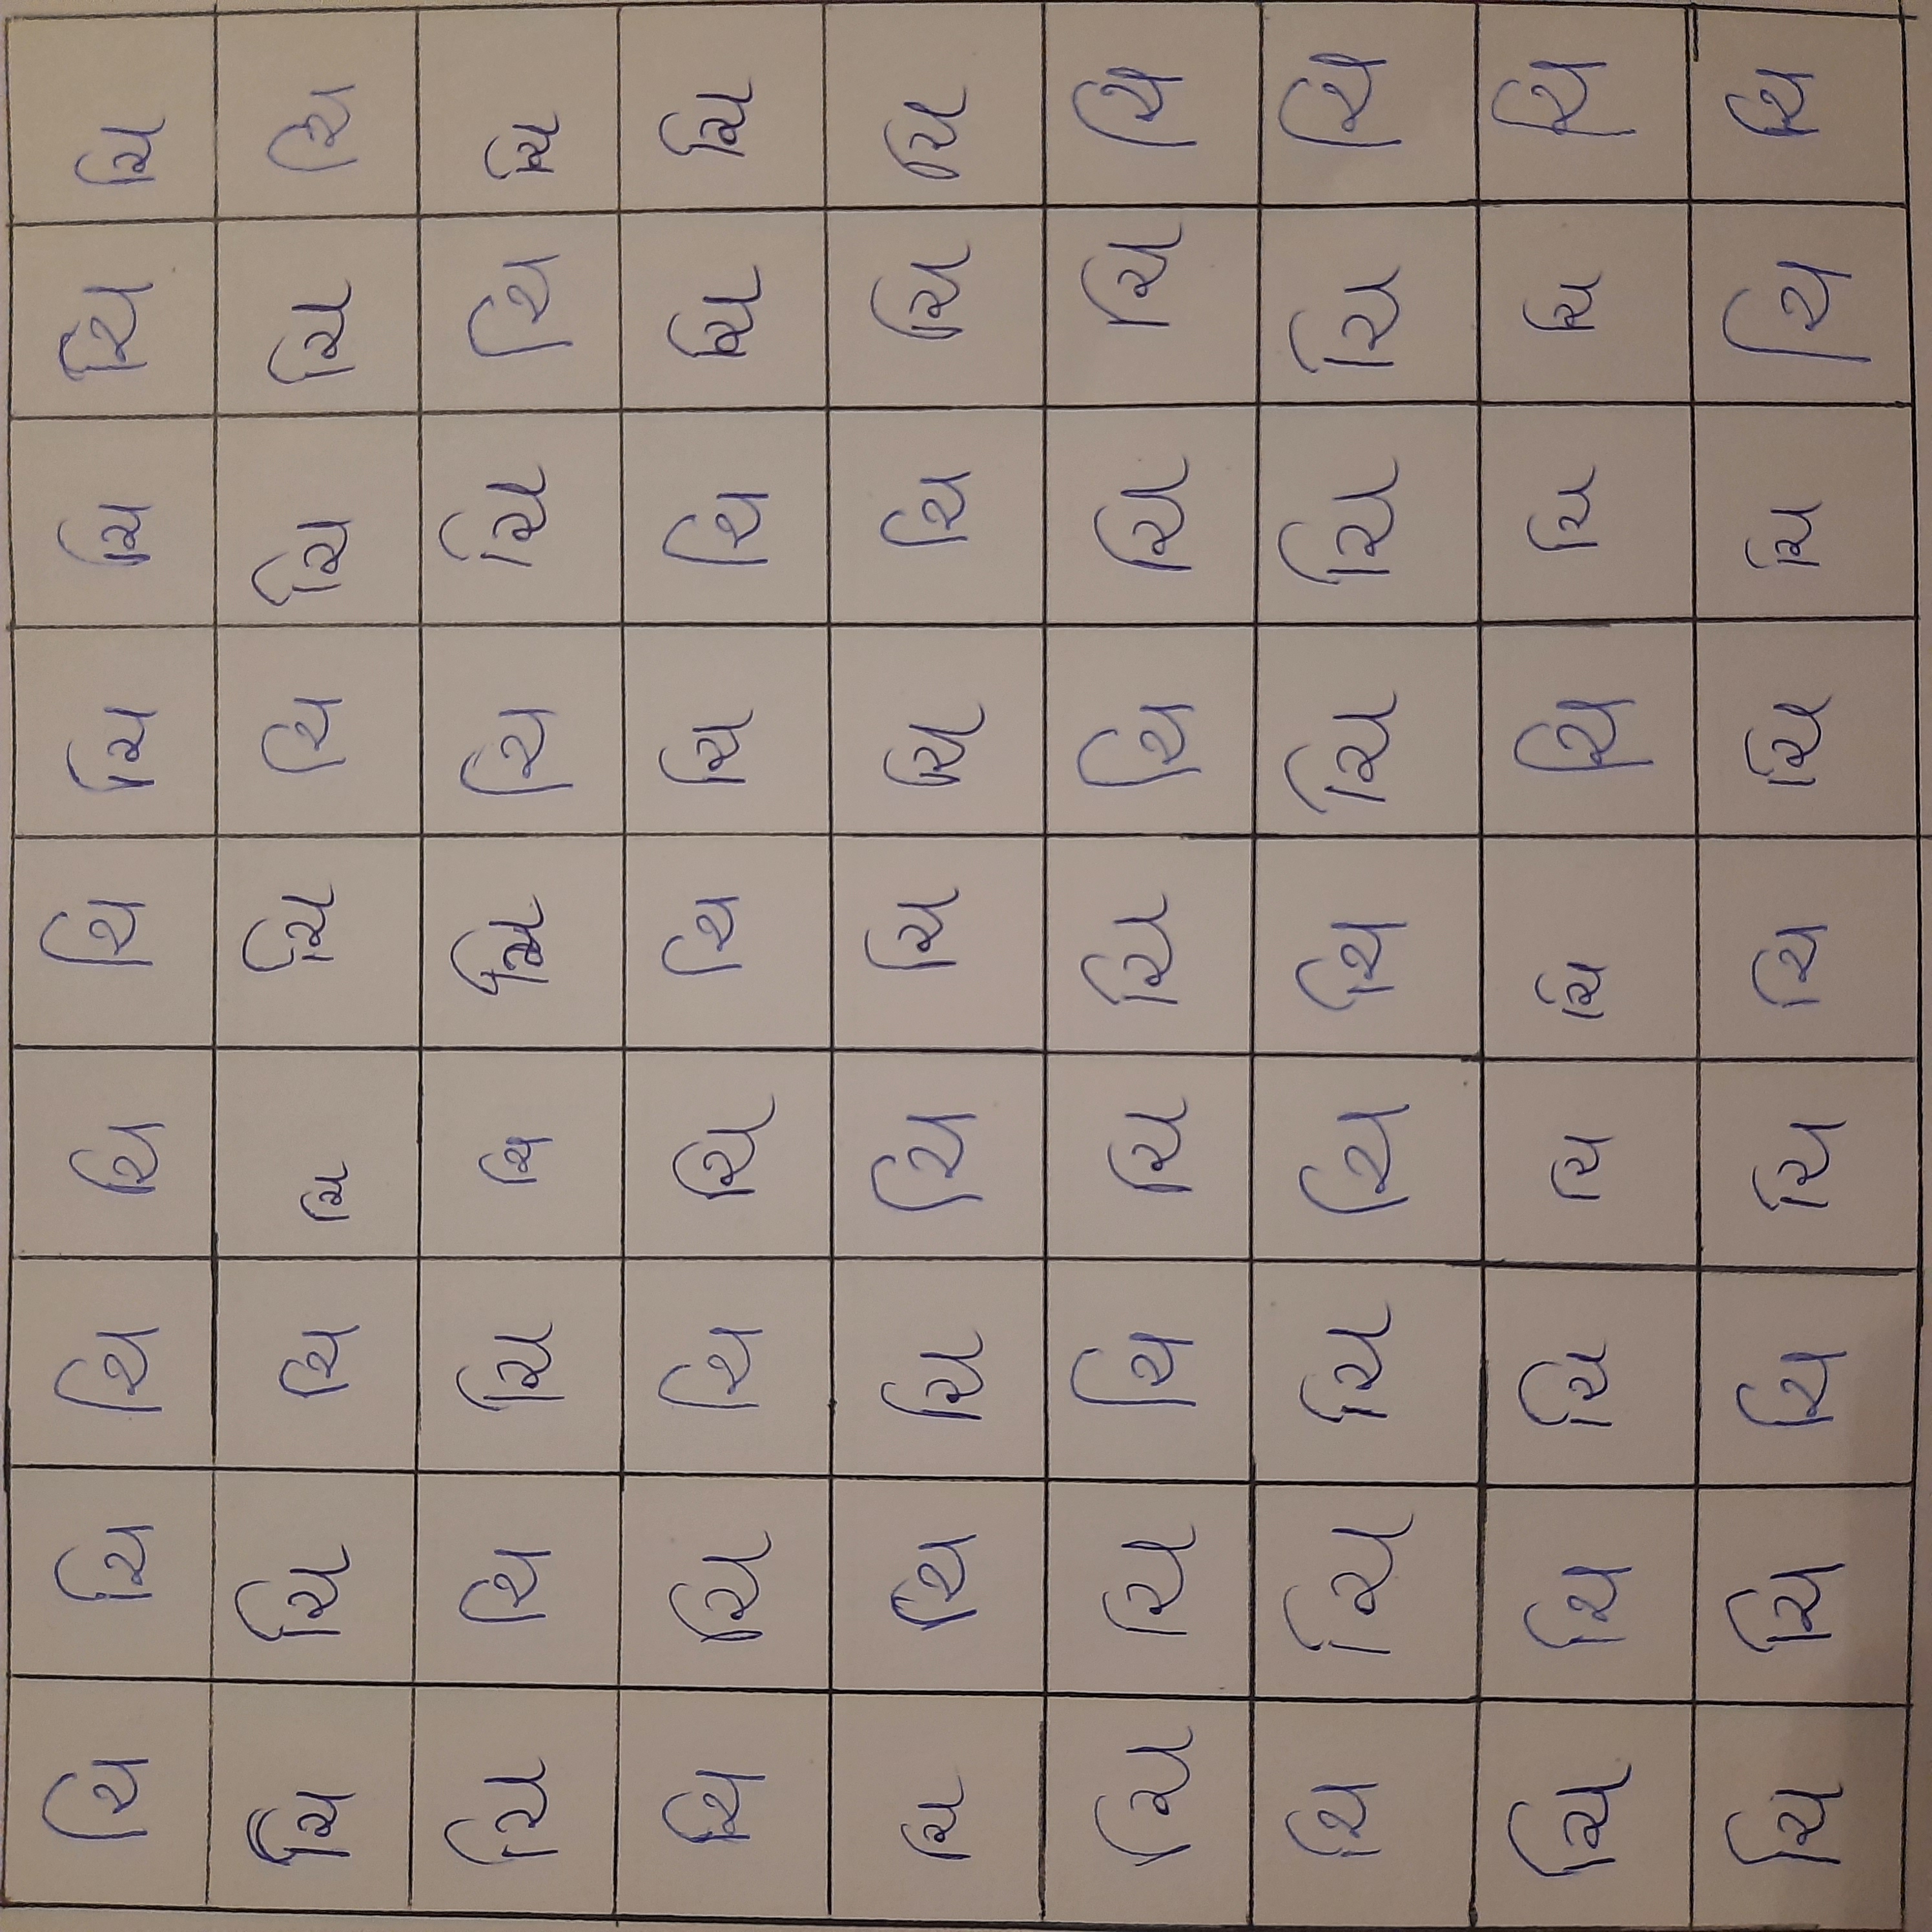 ચિ ચિ ચિ ચિ ચિ ચિ ચિ ચિ ચિ
ચિ ચિ ચિ ચિ ચિ ચિ ચિ ચિ ચિ
ચિ ચિ ચિ ચિ ચિ ચિ ચિ ચિ ચિ
ચિ ચિ ચિ ચિ ચિ ચિ ચિ ચિ ચિ
ચિ ચિ ચિ ચિ ચિ ચિ ચિ ચિ ચિ
ચિ ચિ ચિ ચિ ચિ ચિ ચિ ચિ ચિ
ચિ ચિ ચિ ચિ ચિ ચિ ચિ ચિ ચિ
ચિ ચિ ચિ ચિ ચિ ચિ ચિ ચિ ચિ
ચિ ચિ ચિ ચિ ચિ ચિ ચિ ચિ ચિ